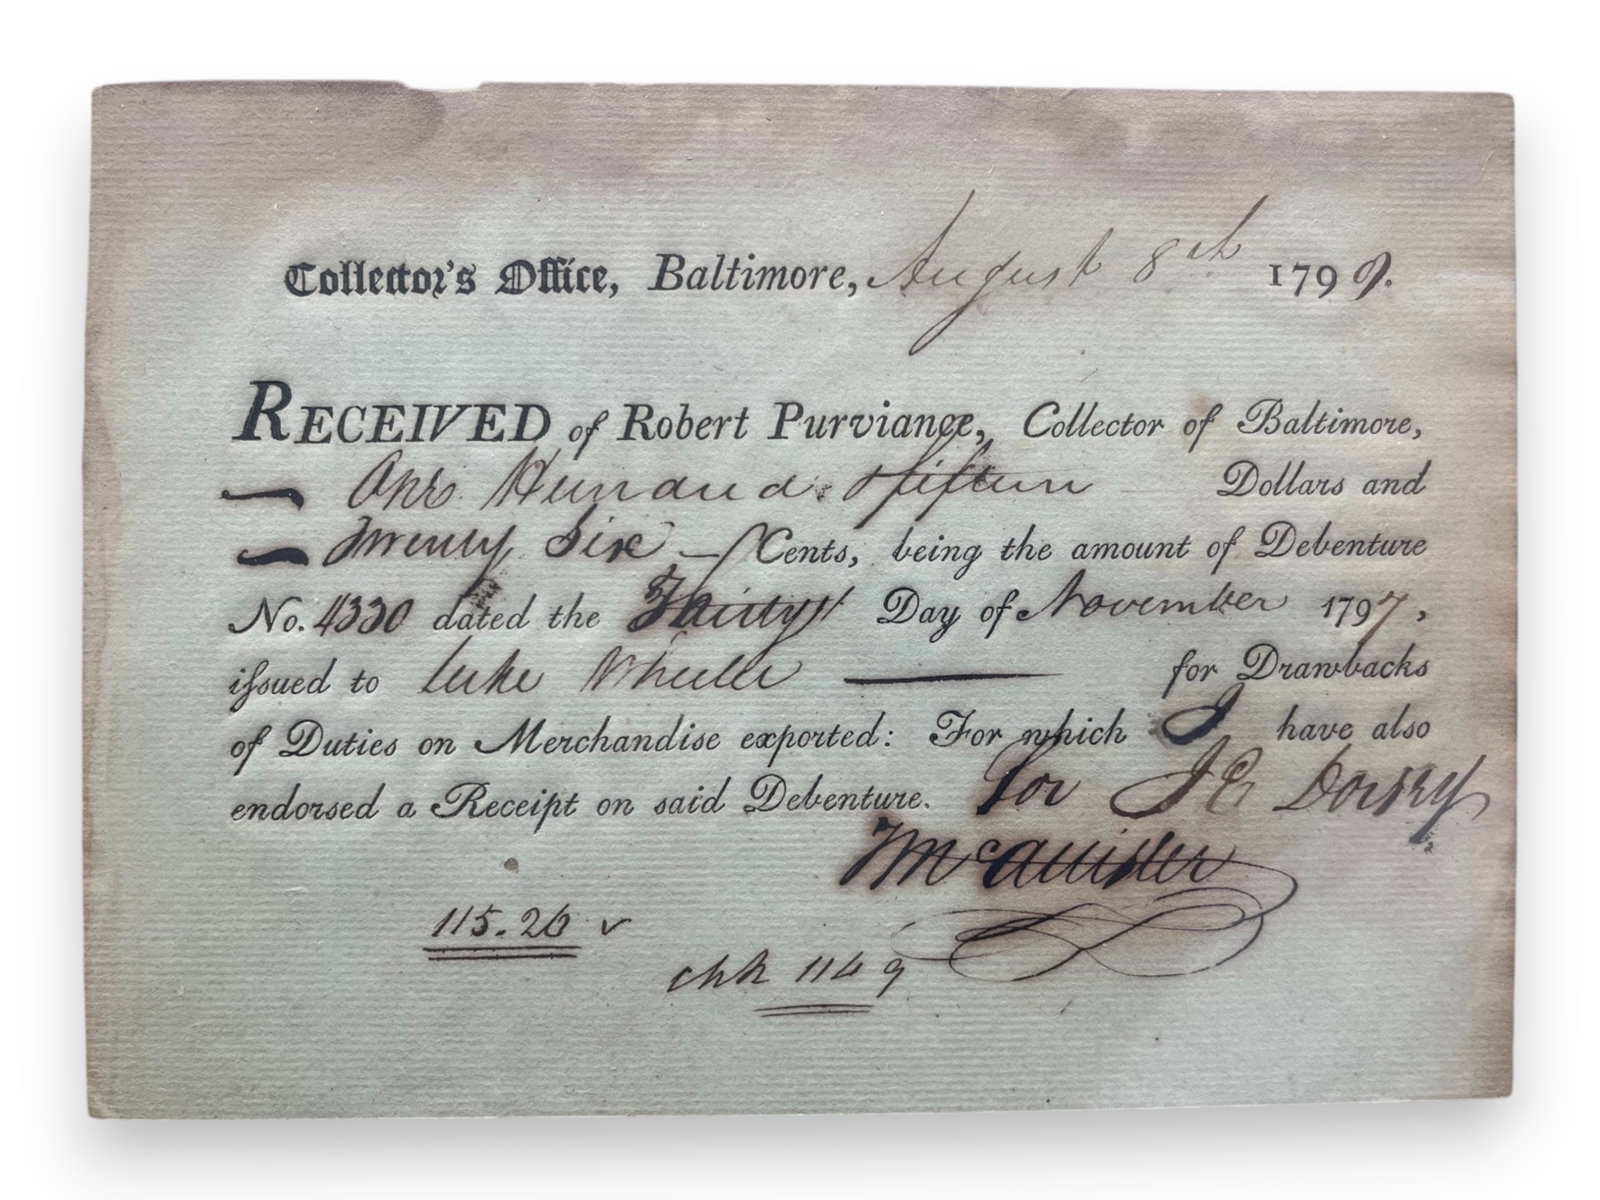 Collector's Office, Baltimore, August 8th 1799.
RECEIVED of Robert Purviance, Collector of Baltimore,
One Hundred & fifteen Dollars and
Twenty Six Cents, being the amount of Debenture
No. 4330 dated the Thirty Day of November 1797,
issued to Luke Wheeler for Drawbacks
of Duties on Merchandise exported: For which I have also
endorsed a Receipt on said Debenture. for J E Dorsey
McCallister
115.26
chk 1149